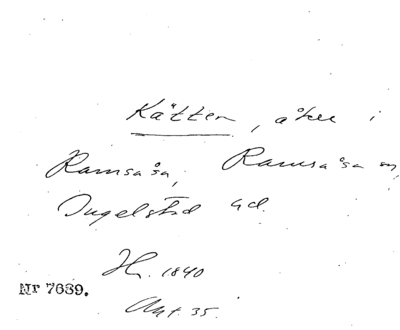 Kätten, åker i
Ramsåsa, Ramsåsa sn,
Ingelstad hd.
Hr. 1840
Nr 7639.
Ant. 35.